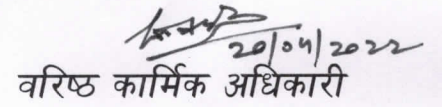 20/04/2022
वरिष्ठ कार्मिक अधिकारी